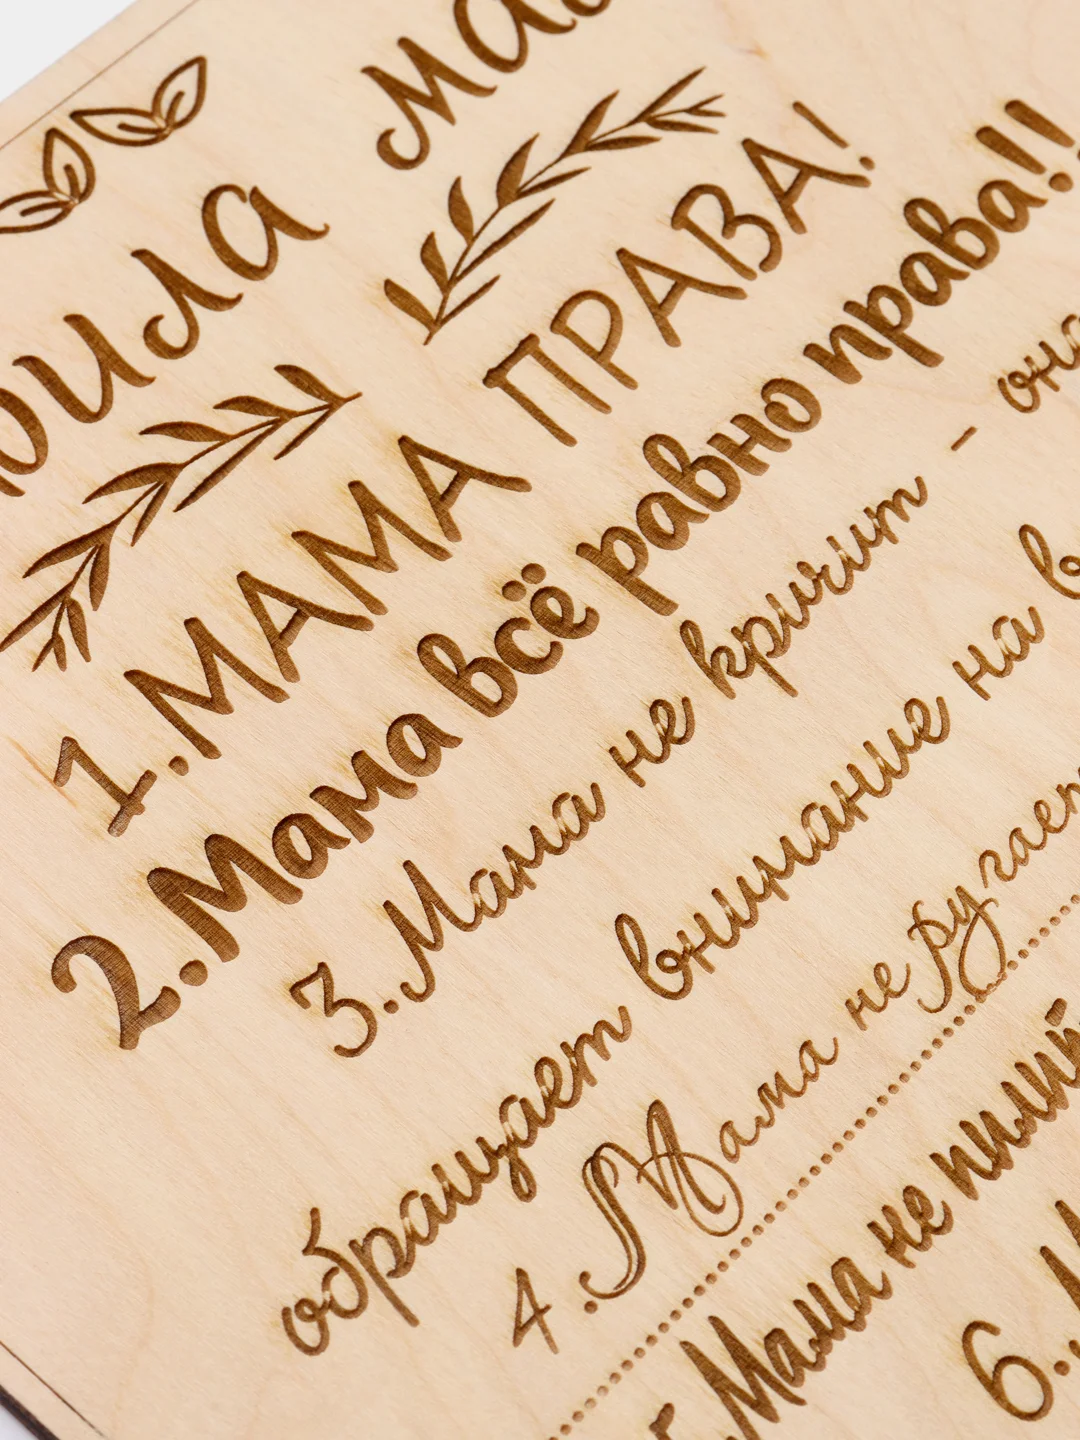 1. МАМА ПРАВА!
2. Мама всё равно права!!
3. Мама не кричит -
обращает внимание на
4. Мама не
5. Мама не пилит
6.